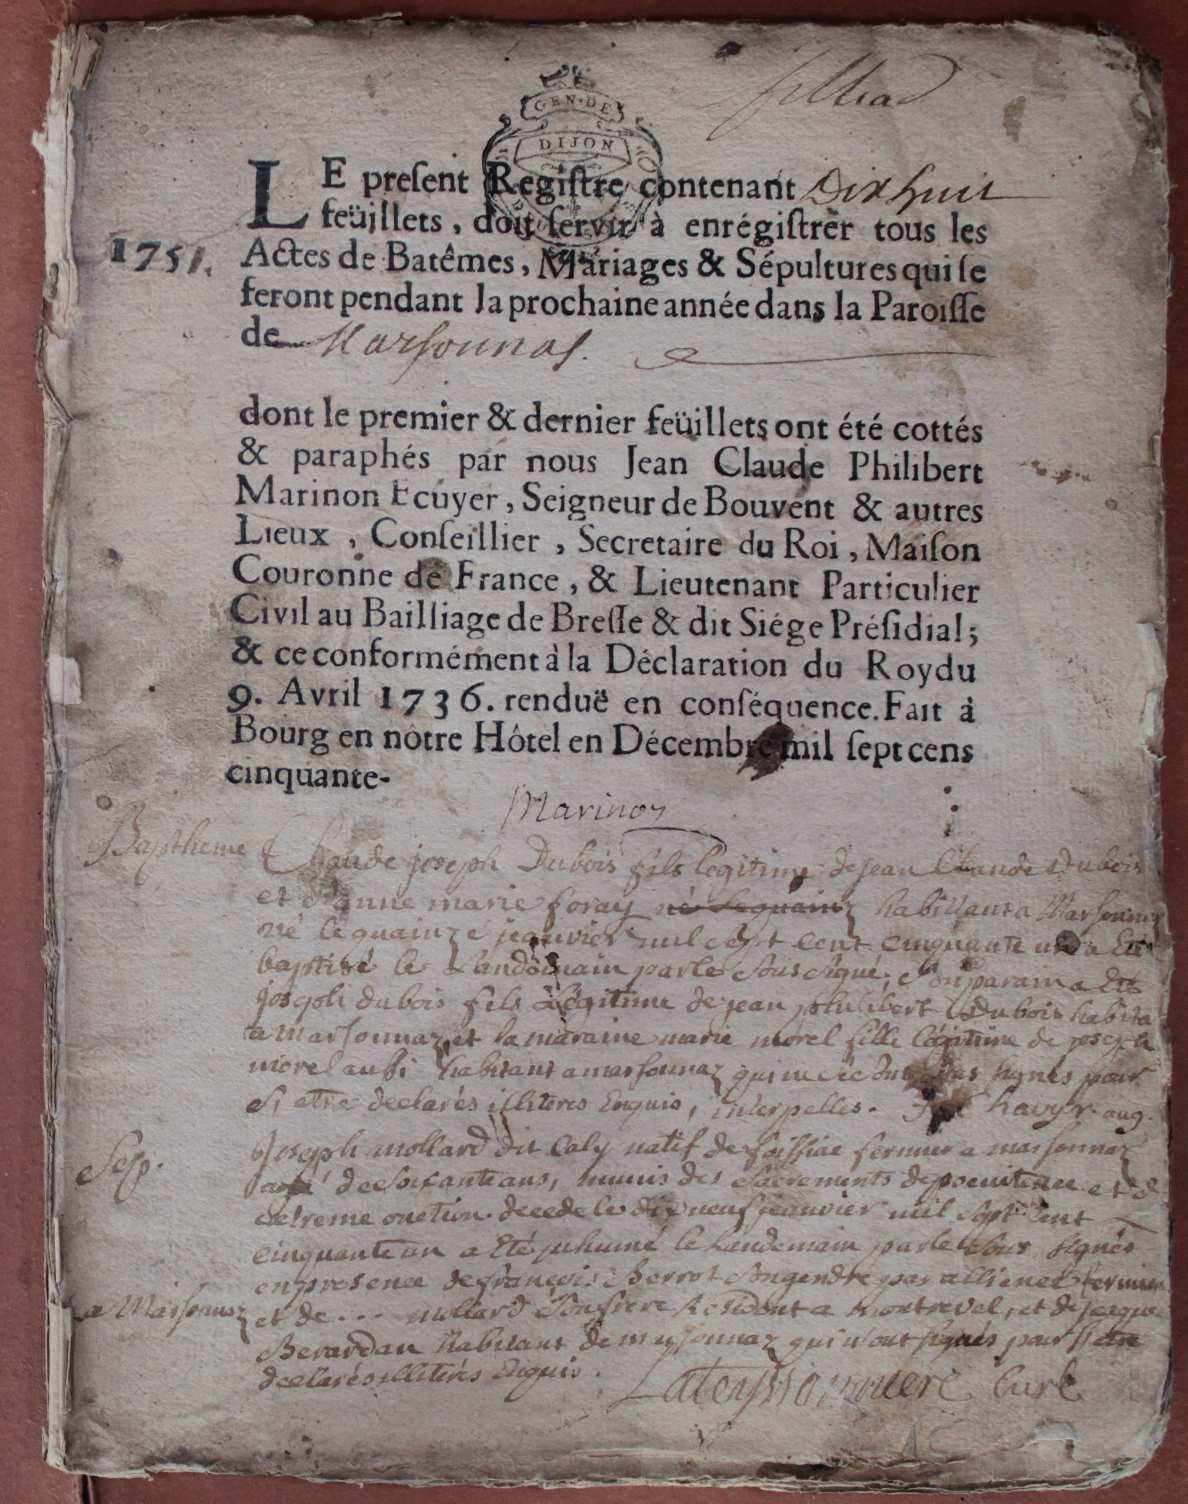 GEN·DE
DIJON
LE preſent Regiſtre contenant Dixhuit
feüillets, doit ſervir à enrégiſtrer tous les
1751.
Actes de Batêmes, Mariages & Sépultures qui ſe
feront pendant la prochaine année dans la Paroiſſe
de Marsonnas.
dont le premier & dernier feüillets ont été cottés
& paraphés par nous Jean Claude Philibert
Marinon Ecuyer, Seigneur de Bouvent & autres
Lieux, Conſeillier, Secretaire du Roi, Maiſon
Couronne de France, & Lieutenant Particulier
Civil au Bailliage de Breſſe & dit Siége Préſidial;
& ce conformément à la Déclaration du Roy du
9. Avril 1736. renduë en conſéquence. Fait à
Bourg en nôtre Hôtel en Décembre mil ſept cens
cinquante-
Marinon
Baptheme
Claude joseph Dubois fils legitime de jean Claude Dubois
et d'anne marie foray né le quainz habittant a Marsonnaz
né le quainze jeanvier mil sept cent cinquante un a Eté
baptisé le Landemain par le sous signé, son parain a Eté
joseph dubois fils légitime de jean philibert Dubois habita
a marsonnaz et la maraine marie morel fille légitime de joseph
morel aussi habitant a marsonnaz qui pour
s, etre declarés illiteres Enquis, interpellés.
Sep.
Joseph mollard dit Caly natif de foissiat fermier a marsonnaz
agé de soixante ans, munis des sacrements de poenitence et d
extreme onction. decedé le dix neuf jeanvier mil sept cent
cinquante un a Eté juhumé le Landemain par le sous signés
en presence de françois Berrot son gendre par alliance fermier
a Marsonnaz
et de ... mollard son frere Résident a montrevel, et de jacque
Berardan habitant de marsonnaz qui n'ont signés pour s'etre
declarés illiterés Enquis.
Lateyssonniere Curé